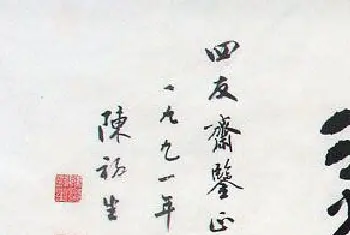 四友齋鑒正
一九九一年
陳福生